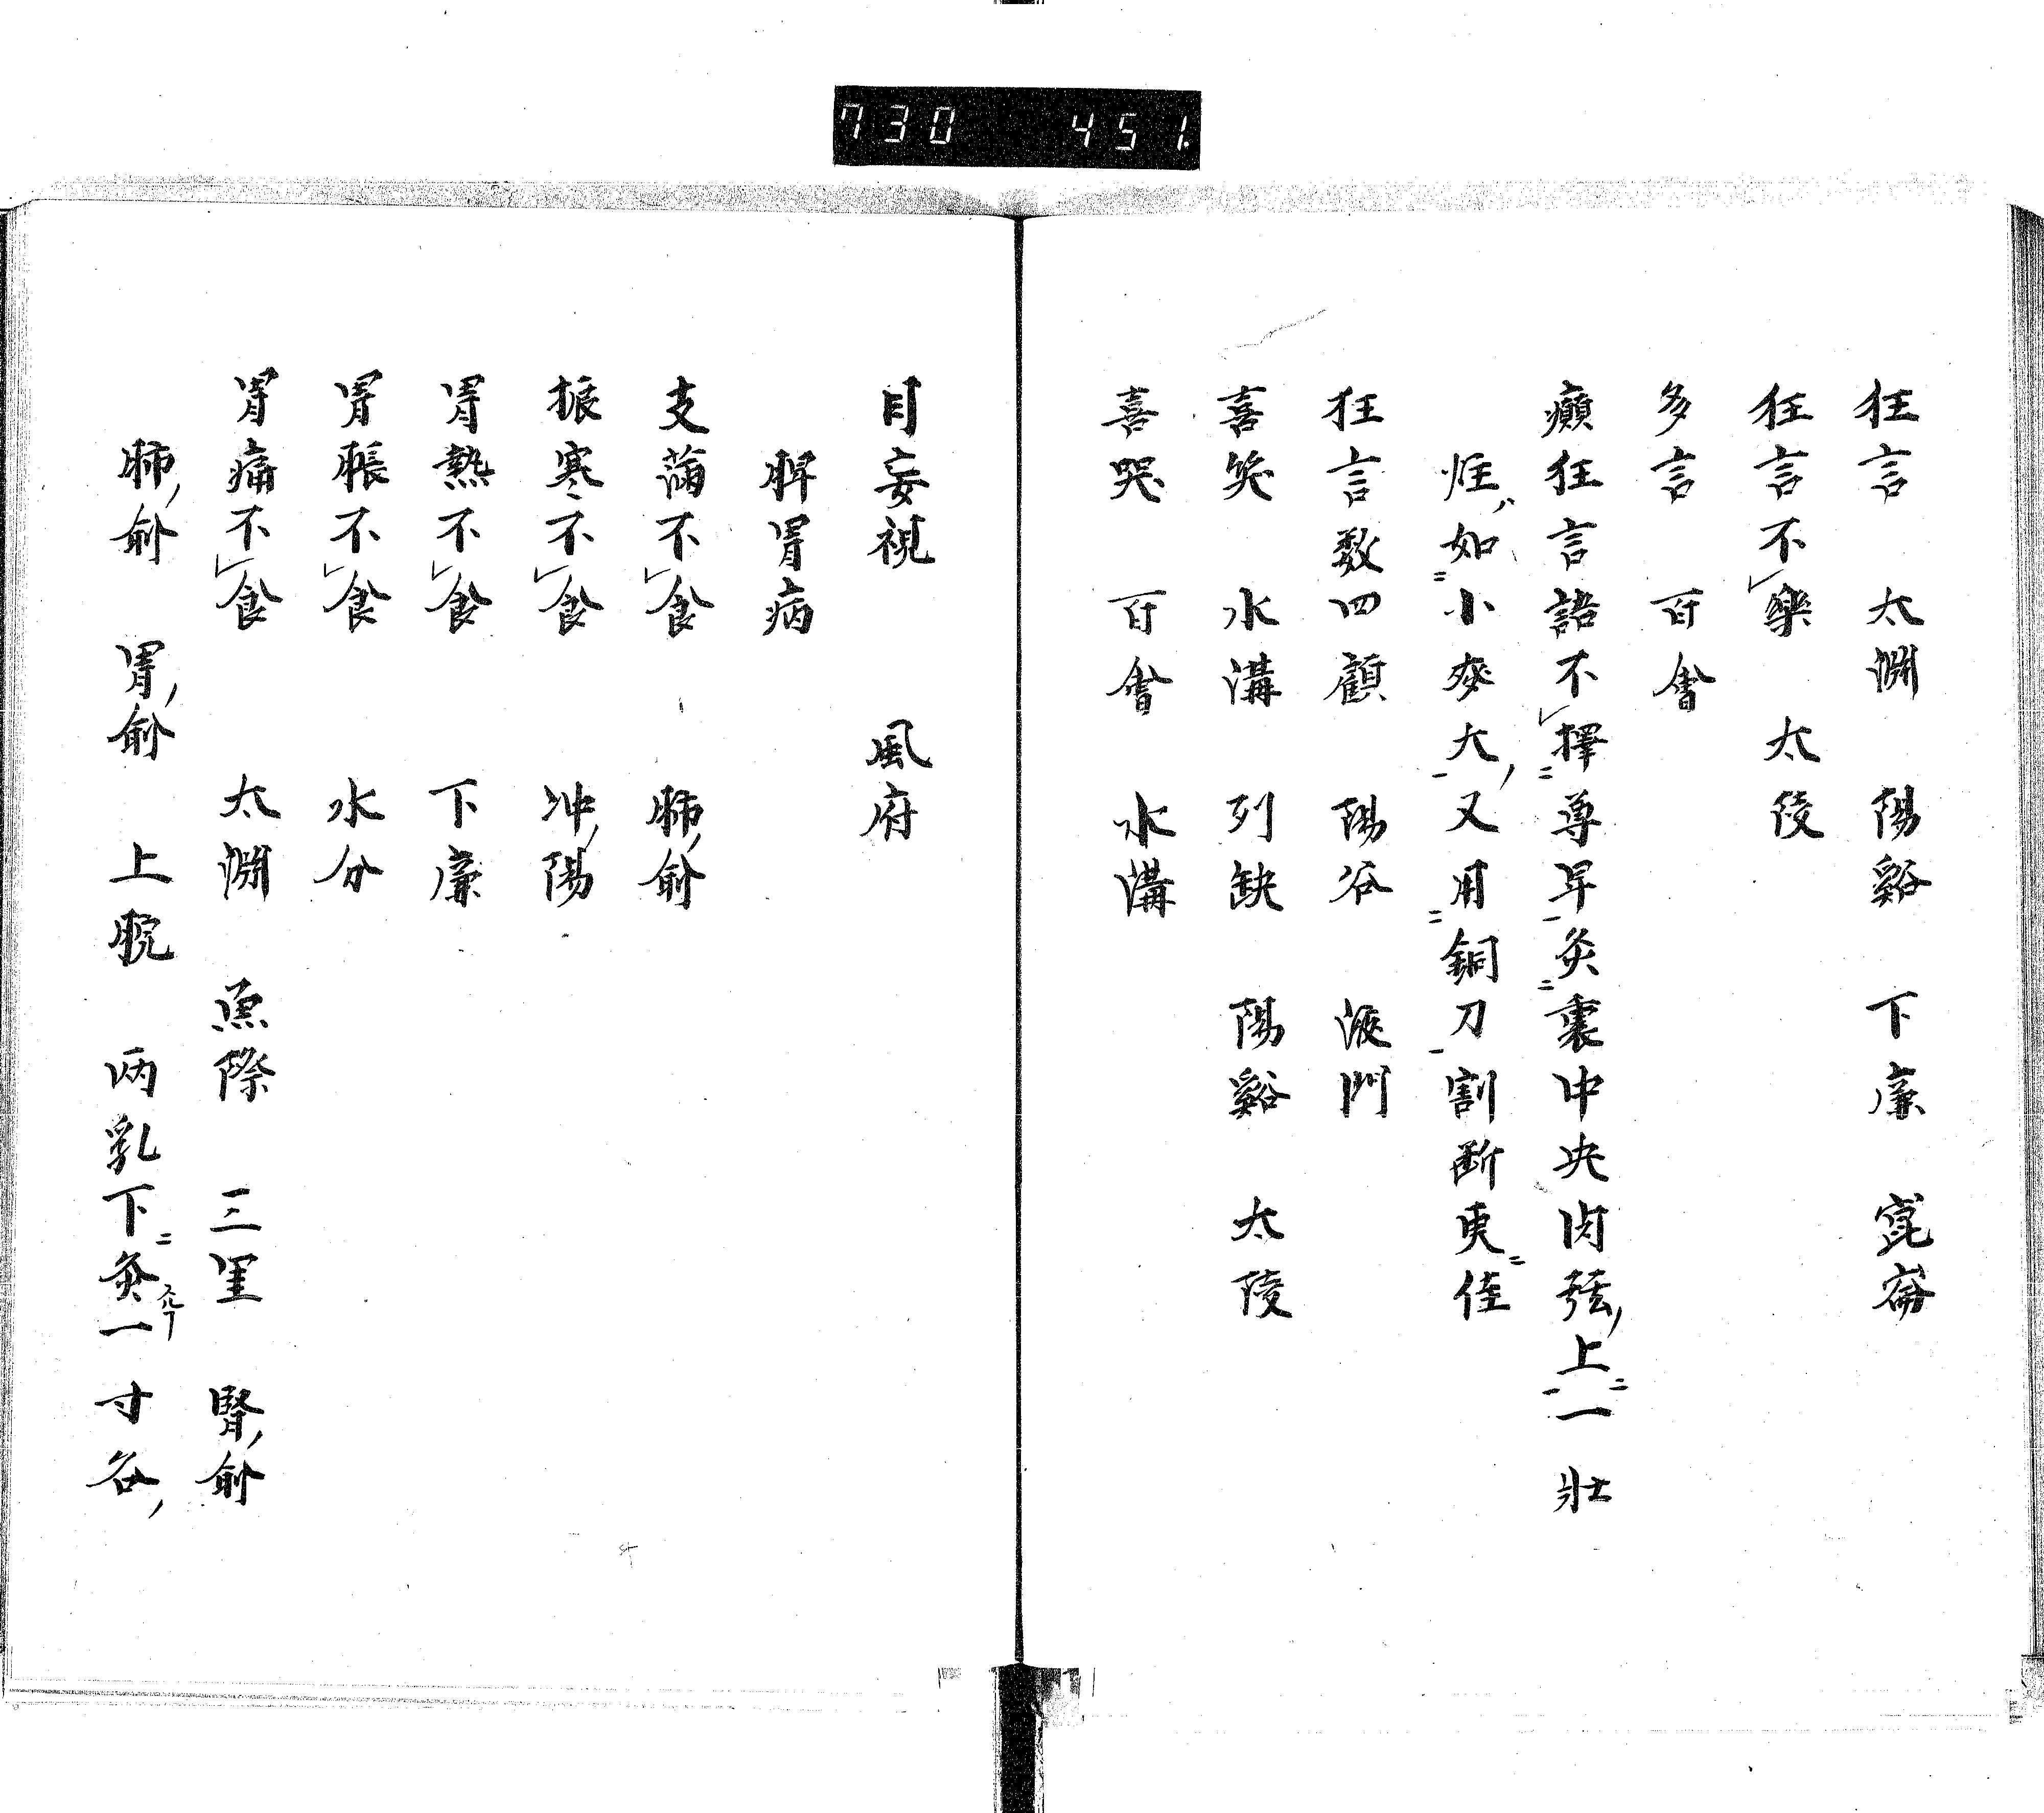 730 451.
狂言　太淵　陽谿　下廉　崑崙
狂言不樂　太陵
多言　百會
癲狂言語不擇尊卑灸裏中央肉弦上一壯
炷如小麥大又用銅刀割斷更佳
狂言数四顧　陽谷　液門
喜笑　水溝　列缺　陽谿　太陵
喜哭　百會　水溝
目妄視　風府
脾胃病
支滿不食　肺俞
振寒不食　冲陽
胃熱不食　下廉
胃脹不食　水分
胃痛不食　太淵　魚際　三里　腎俞
肺俞　胃俞　上脘　两乳下灸一寸各